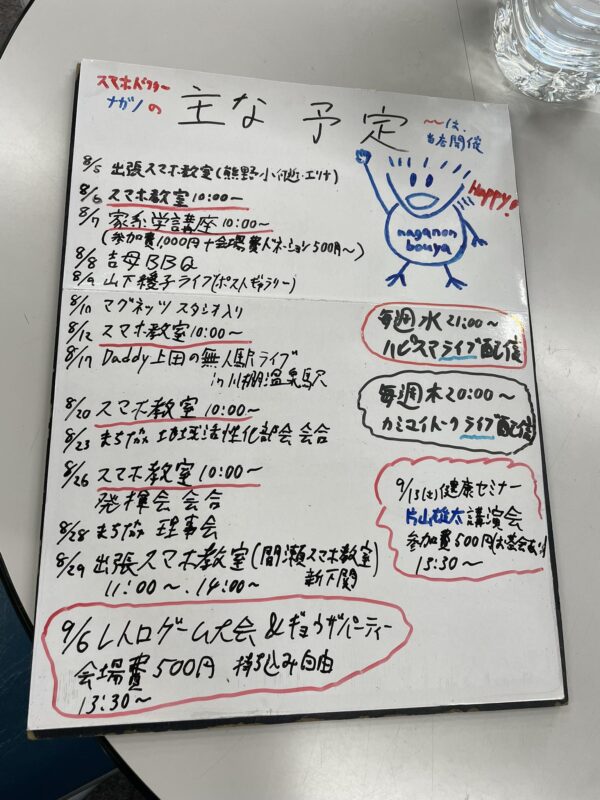 スマホドクター
ナガノの
主な予定
〜は、
当店開催
8/5 出張スマホ教室(熊野小付近・エリナ)
8/6 スマホ教室 10:00〜
8/7 家系学講座 10:00〜
(参加費1000円+会場費ドネーション500円〜)
8/8 吉母BBQ
8/9 山下穂子ライブ(ポストギャラリー)
8/10 マグネッツ スタジオ入り
8/12 スマホ教室 10:00〜
8/17 Daddy上田の無人駅ライブ
in 川棚温泉駅
8/20 スマホ教室 10:00〜
8/23 まち協 地域活性化部会 会合
8/26 スマホ教室 10:00〜
発揮会 会合
8/28 まち協 理事会
8/29 出張スマホ教室(間瀬スマホ教室)
新下関
11:00〜、14:00〜
9/6 レトロゲーム大会 & ギョウザパーティー
会場費500円、持ち込み自由
13:30〜
Happy!
naganon
bouya
毎週水21:00〜
ハピスマライブ配信
毎週木20:00〜
カミユイトークライブ配信
9/13(土)健康セミナー
片山雄太講演会
参加費500円(お茶会あり)
15:30〜